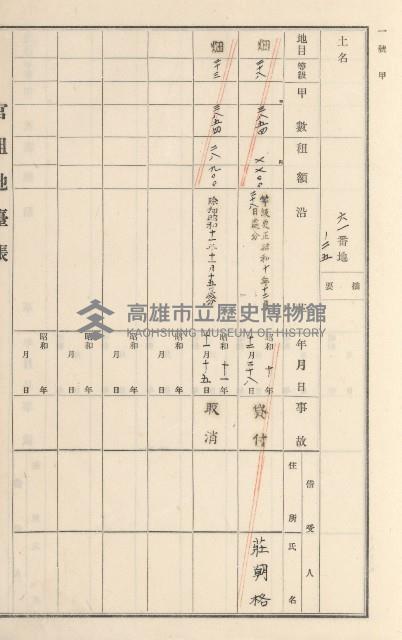 一號甲
土名
六一番地
ノ二五
摘要
地目
等級
甲數
租額
沿
年月日
事故
借受人
住所
氏名
畑
二八
三八五四
昭和十年
十二月二十八日
貸付
莊朝格
等級更正昭和十年十二月
二十八日處分
畑
二十三
三八五四
二八九〇〇
昭和十一年
十一月十五日
取消
昭和 年
月 日
昭和 年
月 日
昭和 年
月 日
昭和 年
月 日
官租地臺帳
高雄市立歷史博物館
KAOHSIUNG MUSEUM OF HISTORY